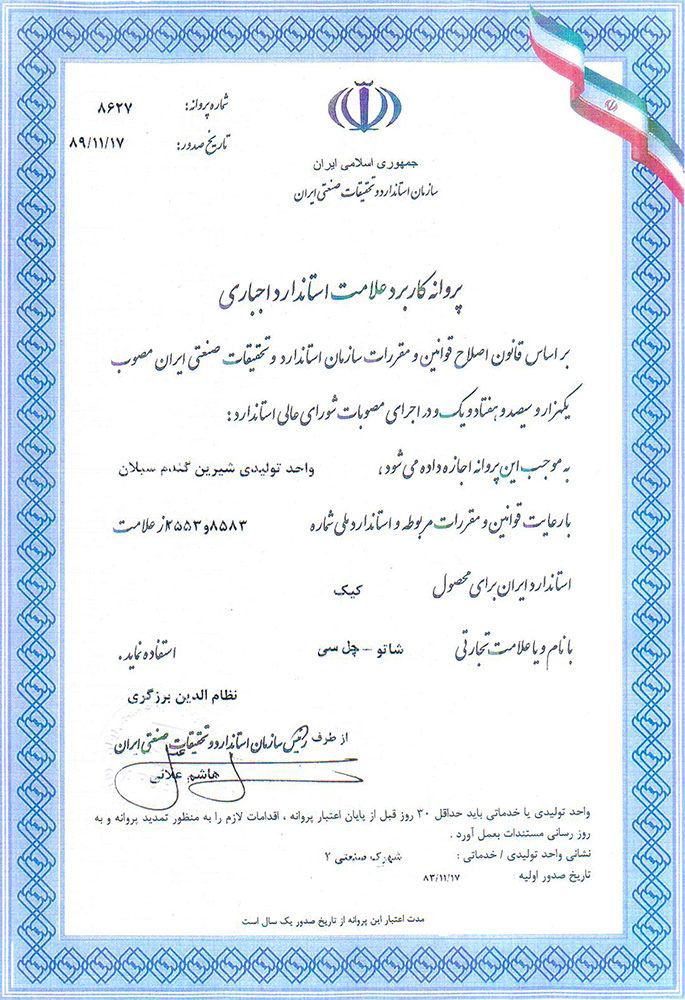 شماره پروانه: ۸۶۲۷
تاریخ صدور: ۸۹/۱۱/۱۷
جمهوری اسلامی ایران
سازمان استاندارد و تحقیقات صنعتی ایران
پروانه کاربرد علامت استاندارد اجباری
بر اساس قانون اصلاح قوانین و مقررات سازمان استاندارد و تحقیقات صنعتی ایران مصوب
یکهزار و سیصد و هفتاد و یک و در اجرای مصوبات شورای عالی استاندارد:
به موجب این پروانه اجازه داده می شود، واحد تولیدی شیرین گندم سبلان
با رعایت قوانین و مقررات مربوطه و استاندارد ملی شماره ۸۵۸۳و۲۵۵۳ از علامت
استاندارد ایران برای محصول کیک
با نام و یا علامت تجارتی شاتو - چل سی استفاده نماید.
نظام الدین برزگری
از طرف رئیس سازمان استاندارد و تحقیقات صنعتی ایران
هاشم علائی
واحد تولیدی یا خدماتی باید حداقل ۳۰ روز قبل از پایان اعتبار پروانه ، اقدامات لازم را به منظور تمدید پروانه و به
روز رسانی مستندات بعمل آورد .
نشانی واحد تولیدی / خدماتی : شهرک صنعتی ۲
تاریخ صدور اولیه ۸۳/۱۱/۱۷
مدت اعتبار این پروانه از تاریخ صدور یک سال است